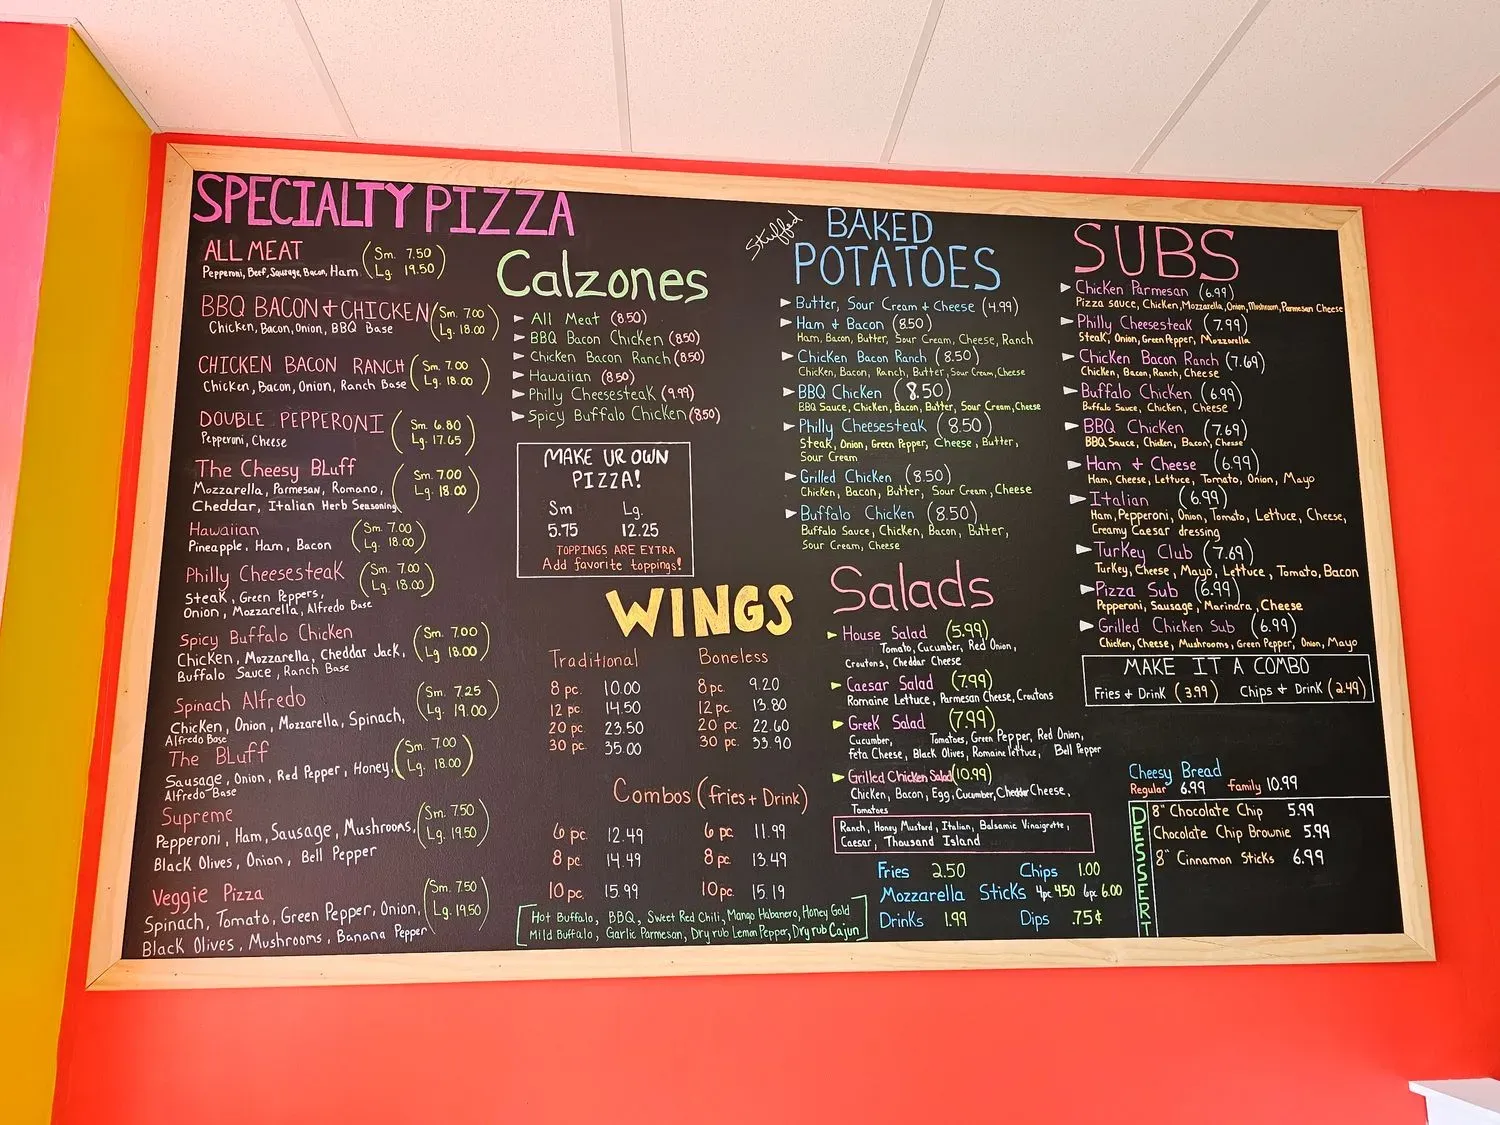 SPECIALTY PIZZA
ALL MEAT (Sm. 7.50
Pepperoni, Beef, Sausage, Bacon, Ham Lg. 19.50)
BBQ BACON + CHICKEN (Sm. 7.00
Chicken, Bacon, Onion, BBQ Base Lg. 18.00)
CHICKEN BACON RANCH (Sm. 7.00
Chicken, Bacon, Onion, Ranch Base Lg. 18.00)
DOUBLE PEPPERONI (Sm. 6.80
Pepperoni, Cheese Lg. 17.65)
The Cheesy Bluff (Sm. 7.00
Mozzarella, Parmesan, Romano, Lg. 18.00)
Cheddar, Italian Herb Seasoning
Hawaiian (Sm. 7.00
Pineapple, Ham, Bacon Lg. 18.00)
Philly Cheesesteak (Sm. 7.00
Steak, Green Peppers, Lg. 18.00)
Onion, Mozzarella, Alfredo Base
Spicy Buffalo Chicken (Sm. 7.00
Chicken, Mozzarella, Cheddar Jack, Lg 18.00)
Buffalo Sauce, Ranch Base
Spinach Alfredo (Sm. 7.25
Chicken, Onion, Mozzarella, Spinach, Lg. 19.00)
Alfredo Base
The Bluff (Sm. 7.00
Sausage, Onion, Red Pepper, Honey, Lg. 18.00)
Alfredo Base
Supreme (Sm. 7.50
Pepperoni, Ham, Sausage, Mushrooms, Lg. 19.50)
Black Olives, Onion, Bell Pepper
Veggie Pizza (Sm. 7.50
Spinach, Tomato, Green Pepper, Onion, Lg. 19.50)
Black Olives, Mushrooms, Banana Pepper
Calzones
All Meat (8.50)
BBQ Bacon Chicken (8.50)
Chicken Bacon Ranch (8.50)
Hawaiian (8.50)
Philly Cheesesteak (9.99)
Spicy Buffalo Chicken (8.50)
MAKE UR OWN
PIZZA!
Sm Lg.
5.75 12.25
TOPPINGS ARE EXTRA
Add favorite toppings!
WINGS
Traditional Boneless
8 pc. 10.00 8 pc. 9.20
12 pc. 14.50 12 pc. 13.80
20 pc. 23.50 20 pc. 22.60
30 pc. 35.00 30 pc. 33.90
Combos (fries + Drink)
6 pc. 12.49 6 pc. 11.99
8 pc. 14.49 8 pc. 13.49
10 pc. 15.99 10 pc. 15.19
Hot Buffalo, BBQ, Sweet Red Chili, Mango Habanero, Honey Gold
Mild Buffalo, Garlic Parmesan, Dry rub Lemon Pepper, Dry rub Cajun
Stuffed BAKED
POTATOES
Butter, Sour Cream + Cheese (4.99)
Ham + Bacon (8.50)
Ham, Bacon, Butter, Sour Cream, Cheese, Ranch
Chicken Bacon Ranch (8.50)
Chicken, Bacon, Ranch, Butter, Sour Cream, Cheese
BBQ Chicken (8.50)
BBQ Sauce, Chicken, Bacon, Butter, Sour Cream, Cheese
Philly Cheesesteak (8.50)
Steak, Onion, Green Pepper, Cheese, Butter,
Sour Cream
Grilled Chicken (8.50)
Chicken, Bacon, Butter, Sour Cream, Cheese
Buffalo Chicken (8.50)
Buffalo Sauce, Chicken, Bacon, Butter,
Sour Cream, Cheese
Salads
House Salad (5.99)
Tomato, Cucumber, Red Onion,
Croutons, Cheddar Cheese
Caesar Salad (7.99)
Romaine Lettuce, Parmesan Cheese, Croutons
Greek Salad (7.99)
Cucumber, Tomatoes, Green Pepper, Red Onion,
feta Cheese, Black Olives, Romaine lettuce, Bell Pepper
Grilled Chicken Salad (10.99)
Chicken, Bacon, Egg, Cucumber, Cheddar Cheese,
Tomatoes
Ranch, Honey Mustard, Italian, Balsamic Vinaigrette,
Caesar, Thousand Island
Fries 2.50 Chips 1.00
Mozzarella Sticks 4pc 4.50 6pc 6.00
Drinks 1.99 Dips .75¢
SUBS
Chicken Parmesan (6.99)
Pizza sauce, Chicken, Mozzarella, Onion, Mushroom, Parmesan Cheese
Philly Cheesesteak (7.99)
Steak, Onion, Green Pepper, Mozzarella
Chicken Bacon Ranch (7.69)
Chicken, Bacon, Ranch, Cheese
Buffalo Chicken (6.99)
Buffalo Sauce, Chicken, Cheese
BBQ Chicken (7.69)
BBQ Sauce, Chicken, Bacon, Cheese
Ham + Cheese (6.99)
Ham, Cheese, Lettuce, Tomato, Onion, Mayo
Italian (6.99)
Ham, Pepperoni, Onion, Tomato, Lettuce, Cheese,
Creamy Caesar dressing
Turkey Club (7.69)
Turkey, Cheese, Mayo, Lettuce, Tomato, Bacon
Pizza Sub (6.99)
Pepperoni, Sausage, Marindra, Cheese
Grilled Chicken Sub (6.99)
Chicken, Cheese, Mushrooms, Green Pepper, Onion, Mayo
MAKE IT A COMBO
Fries + Drink (3.99) Chips + Drink (2.49)
Cheesy Bread
Regular 6.99 family 10.99
DESSERT
8" Chocolate Chip 5.99
Chocolate Chip Brownie 5.99
8" Cinnamon Sticks 6.99